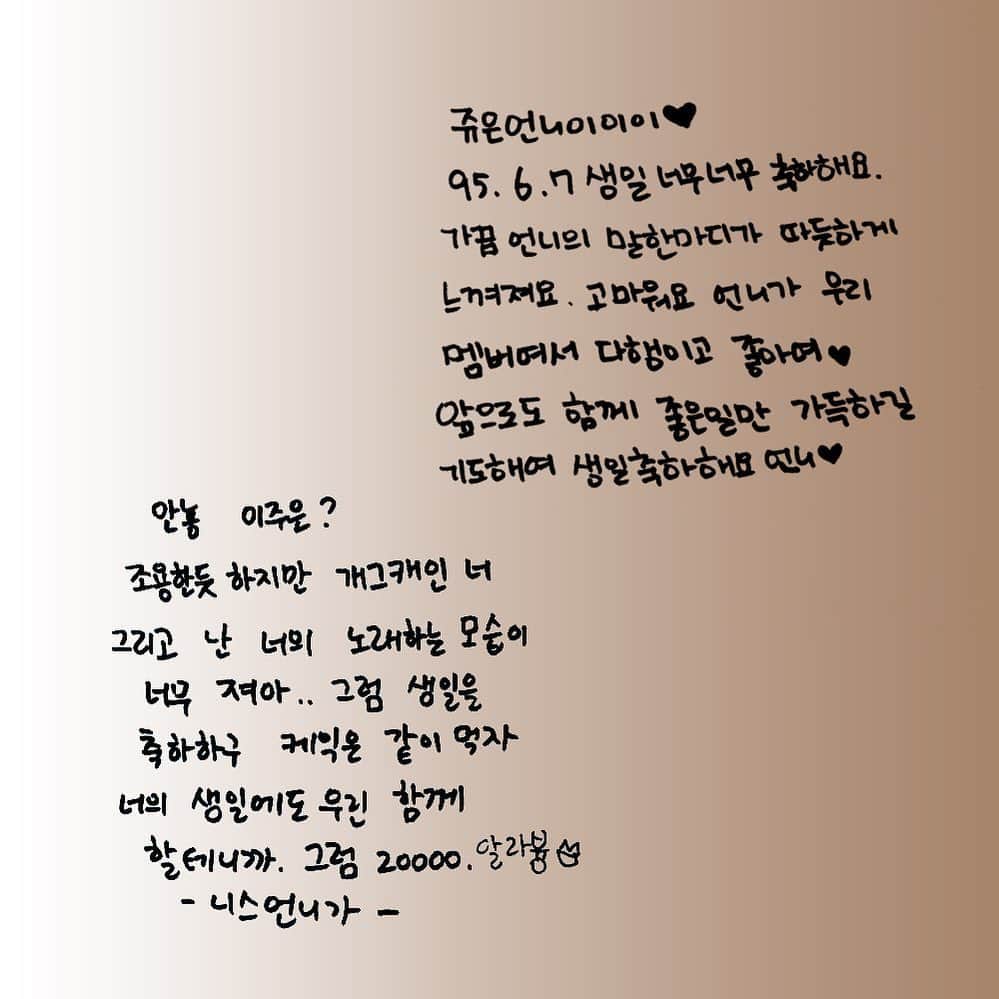 쥬은언니이이이♥
95. 6. 7 생일 너무너무 축하해요.
가끔 언니의 말한마디가 따듯하게
느껴져요. 고마워요 언니가 우리
멤버여서 다행이고 좋아여♥
앞으로도 함께 좋은일만 가득하길
기도해여 생일축하해요 언니♥
안뇽 이주은?
조용한듯 하지만 개그캐인 너
그리고 난 너의 노래하는 모습이
너무 져아.. 그럼 생일을
축하하구 케익은 같이 먹자
너의 생일에도 우린 함께
할테니까. 그럼 20000. 알라붕
- 니스언니가 -